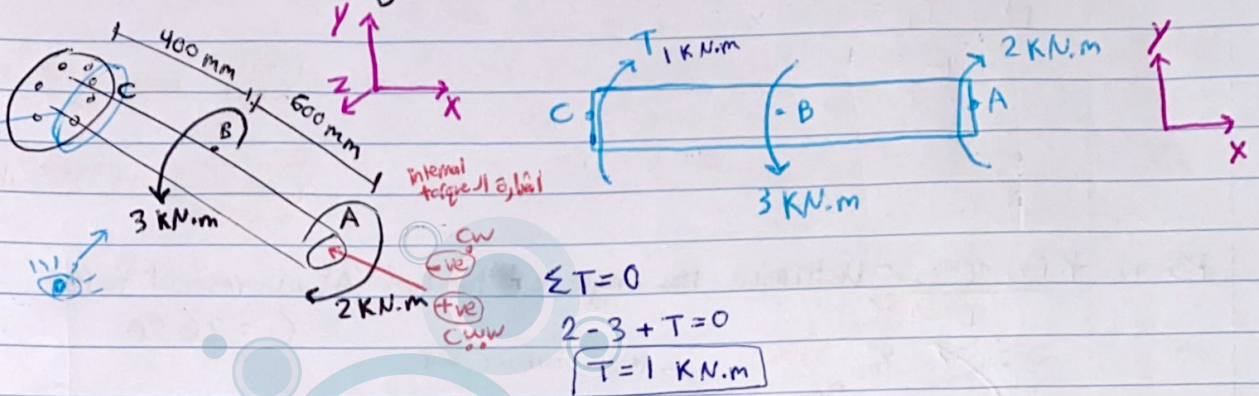 400 mm
600 mm
C
B
A
3 KN.m
2 KN.m
Y
Z
X
internal
torque إشارة ال
CW
-ve
+ve
CWW
T 1 KN.m
2 KN.m
C
B
A
3 KN.m
Y
X
ΣT=0
2-3+T=0
T=1 KN.m